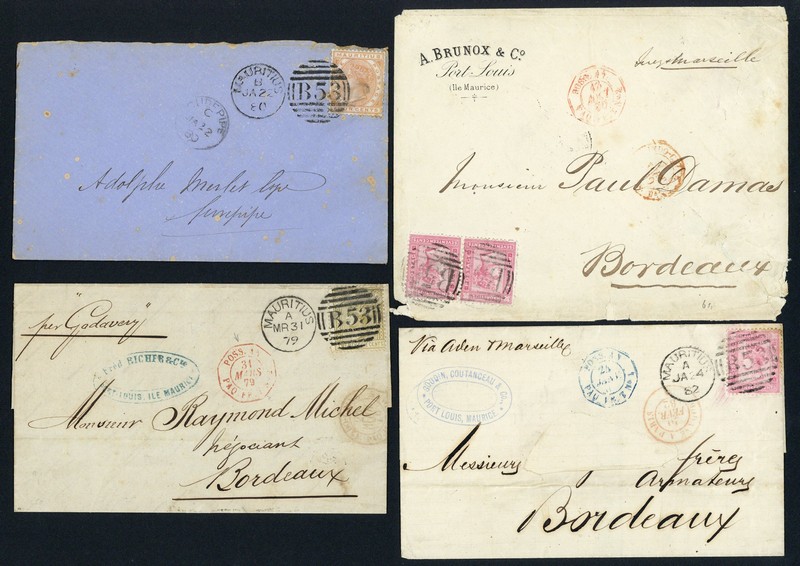 MAURITIUS
B
JA 22
80
B53
MAURITIUS
C
JA 22
80
Adolphe Merlet Esqe
Curepipe
A. BRUNOX & Co
Port Louis
(Ile Maurice)
Marseille
Monsieur Paul Damas
Bordeaux
B53
per "Godavery"
MAURITIUS
A
MR 31
79
B53
Fred RICHER & Co
PORT-LOUIS, ILE MAURICE
POSS. AN
31
MARS
79
PAQ. FR.
Monsieur Raymond Michel
négociant
Bordeaux
Via Aden & Marseille
COUTANCEAU & Co.
PORT LOUIS, MAURICE
POSS. AN
PAQ. FR.
MAURITIUS
A
JA 24
82
B53
Messieurs frères
Armateurs
Bordeaux